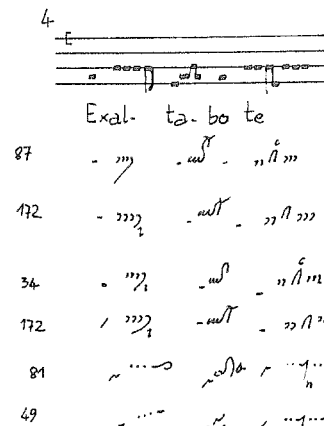 4
Exal- ta- bo te
87
172
34
172
81
49